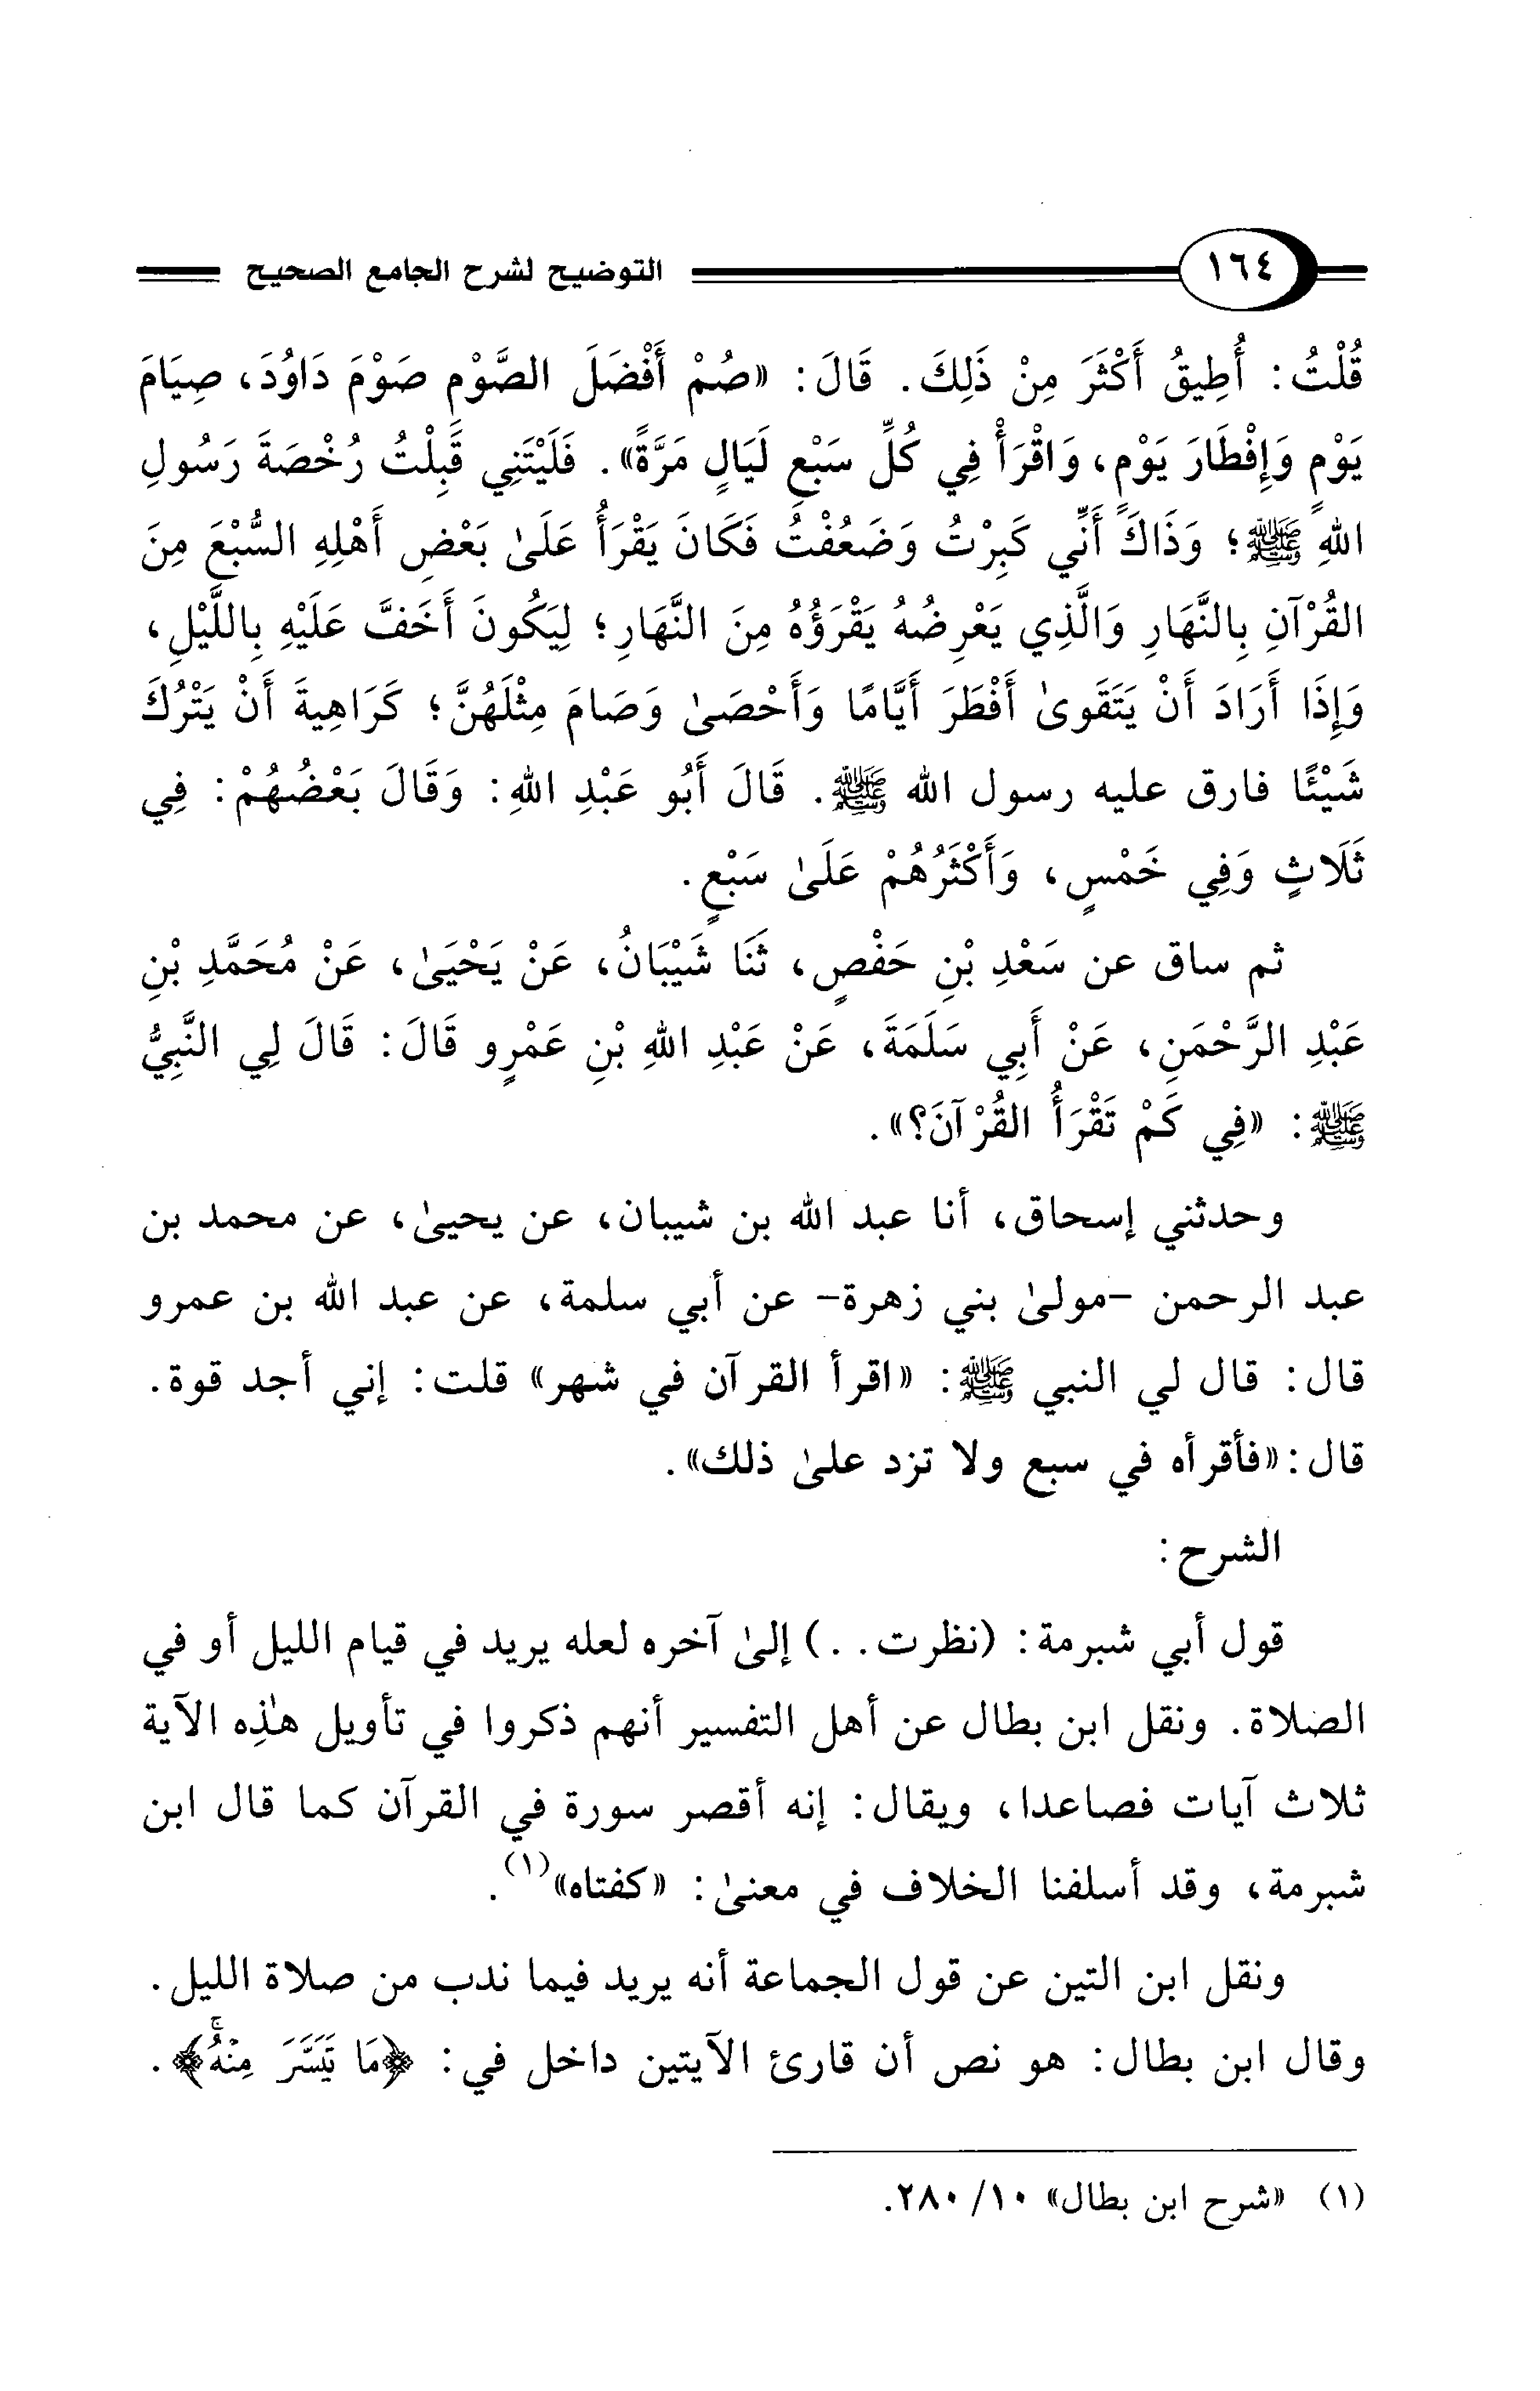 ١٦٤ التوضيح لشرح الجامع الصحيح
قُلْتُ: أُطِيقُ أَكْثَرَ مِنْ ذَلِكَ. قَالَ: «صُمْ أَفْضَلَ الصَّوْمِ صَوْمَ دَاوُدَ، صِيَامَ
يَوْمٍ وَإِفْطَارَ يَوْمٍ، وَاقْرَأْ فِي كُلِّ سَبْعِ لَيَالٍ مَرَّةً». فَلَيْتَنِي قَبِلْتُ رُخْصَةَ رَسُولِ
اللهِ ﷺ؛ وَذَاكَ أَنِّي كَبِرْتُ وَضَعُفْتُ فَكَانَ يَقْرَأُ عَلَىٰ بَعْضِ أَهْلِهِ السُّبْعَ مِنَ
القُرْآنِ بِالنَّهَارِ وَالَّذِي يَعْرِضُهُ يَقْرَؤُهُ مِنَ النَّهَارِ؛ لِيَكُونَ أَخَفَّ عَلَيْهِ بِاللَّيْلِ،
وَإِذَا أَرَادَ أَنْ يَتَقَوىٰ أَفْطَرَ أَيَّامًا وَأَحْصَىٰ وَصَامَ مِثْلَهُنَّ؛ كَرَاهِيةَ أَنْ يَتْرُكَ
شَيْئًا فارق عليه رسول الله ﷺ. قَالَ أَبُو عَبْدِ اللهِ: وَقَالَ بَعْضُهُمْ: فِي
ثَلَاثٍ وَفِي خَمْسٍ، وَأَكْثَرُهُمْ عَلَىٰ سَبْعٍ.
ثم ساق عن سَعْدِ بْنِ حَفْصٍ، ثَنَا شَيْبَانُ، عَنْ يَحْيَىٰ، عَنْ مُحَمَّدِ بْنِ
عَبْدِ الرَّحْمَنِ، عَنْ أَبِي سَلَمَةَ، عَنْ عَبْدِ اللهِ بْنِ عَمْرٍو قَالَ: قَالَ لِي النَّبِيُّ
ﷺ: «فِي كَمْ تَقْرَأُ القُرْآنَ؟».
وحدثني إسحاق، أنا عبد الله بن شيبان، عن يحيىٰ، عن محمد بن
عبد الرحمن -مولىٰ بني زهرة- عن أبي سلمة، عن عبد الله بن عمرو
قال: قال لي النبي ﷺ: «اقرأ القرآن في شهر» قلت: إني أجد قوة.
قال: «فأقرأه في سبع ولا تزد علىٰ ذلك».
الشرح:
قول أبي شبرمة: (نظرت. .) إلىٰ آخره لعله يريد في قيام الليل أو في
الصلاة. ونقل ابن بطال عن أهل التفسير أنهم ذكروا في تأويل هذِه الآية
ثلاث آيات فصاعدا، ويقال: إنه أقصر سورة في القرآن كما قال ابن
شبرمة، وقد أسلفنا الخلاف في معنىٰ: «كفتاه»(١).
ونقل ابن التين عن قول الجماعة أنه يريد فيما ندب من صلاة الليل.
وقال ابن بطال: هو نص أن قارئ الآيتين داخل في: ﴿مَا تَيَسَّرَ مِنْهُۚ﴾.
(١) «شرح ابن بطال» ١٠/ ٢٨٠.